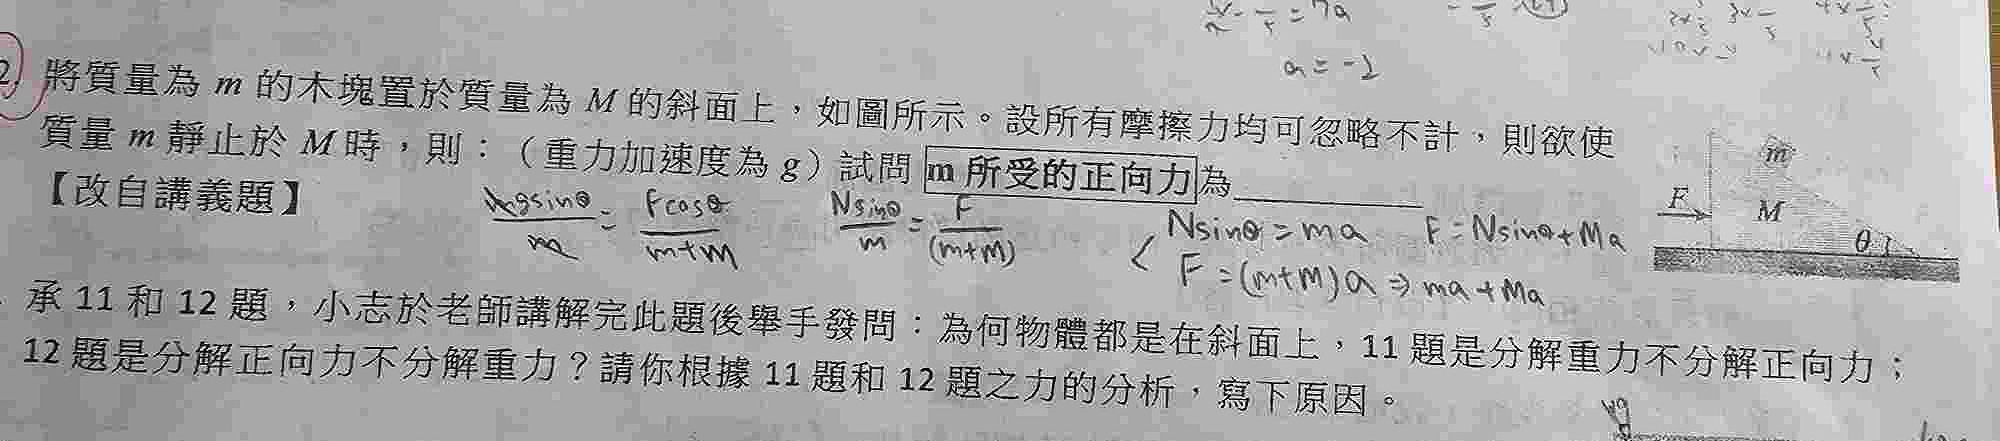 a = -2
2. 將質量為 m 的木塊置於質量為 M 的斜面上，如圖所示。設所有摩擦力均可忽略不計，則欲使
質量 m 靜止於 M 時，則：（重力加速度為 g）試問 m 所受的正向力為
【改自講義題】
mgsinθ/m = Fcosθ/m+M
Nsinθ/m = F/(m+M)
Nsinθ = ma
F = Nsinθ + Ma
F = (m+M)a ⇒ ma + Ma
m
F
M
θ
承 11 和 12 題，小志於老師講解完此題後舉手發問：為何物體都是在斜面上，11 題是分解重力不分解正向力；
12 題是分解正向力不分解重力？請你根據 11 題和 12 題之力的分析，寫下原因。